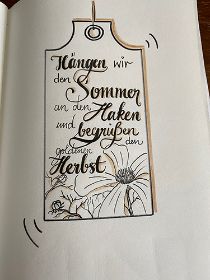 Hängen wir
den Sommer
an den Haken
und begrüßen
den
goldenen
Herbst